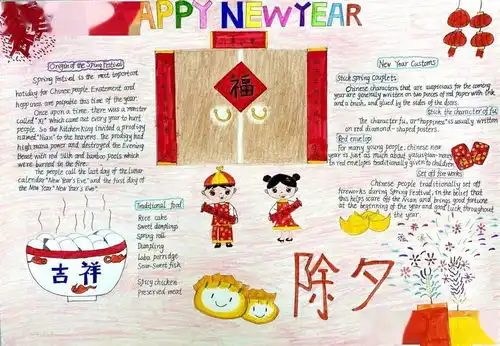 HAPPY NEW YEAR
Origin of the Spring Festival
Spring Festival is the most important
holiday for Chinese people. Excitement and
happiness are palpable this time of the year.
Once upon a time, there was a monster
called "Xi" which came out every year to hunt
people. So the Kitchen King invited a prodigy
named "Nian" to the heavens. The prodigy had
high mana power and destroyed the Evening
Beast with red silk and bamboo pools which
were burned in the fire.
The people call the last day of the lunar
calendar "New Year's Eve" and the first day of
the New Year "New Year's Eve".
福
New Year Customs
Stick Spring Couplets
Chinese characters that are auspicious for the coming
year are generally written on two pieces of red paper with ink
and a brush, and glued by the sides of the doors.
Stick the character of fu
The character fu, or "happiness" is usually written
on red diamond-shaped posters.
Red envelope
For many young people, chinese new
year is just as much about yasuiqian-money
in red envelopes traditionally given to children.
Set off fireworks
Chinese people traditionally set off
fireworks during Spring Festival, in the belief that
this helps scare off the Nian and brings good fortune
at the beginning of the year and good luck throughout
the year.
Traditional food
Rice cake
Sweet dumplings
Spring roll
Dumpling
Laba porridge
Sour-Sweet fish
Spicy chicken
Preserved meat
吉祥
除夕